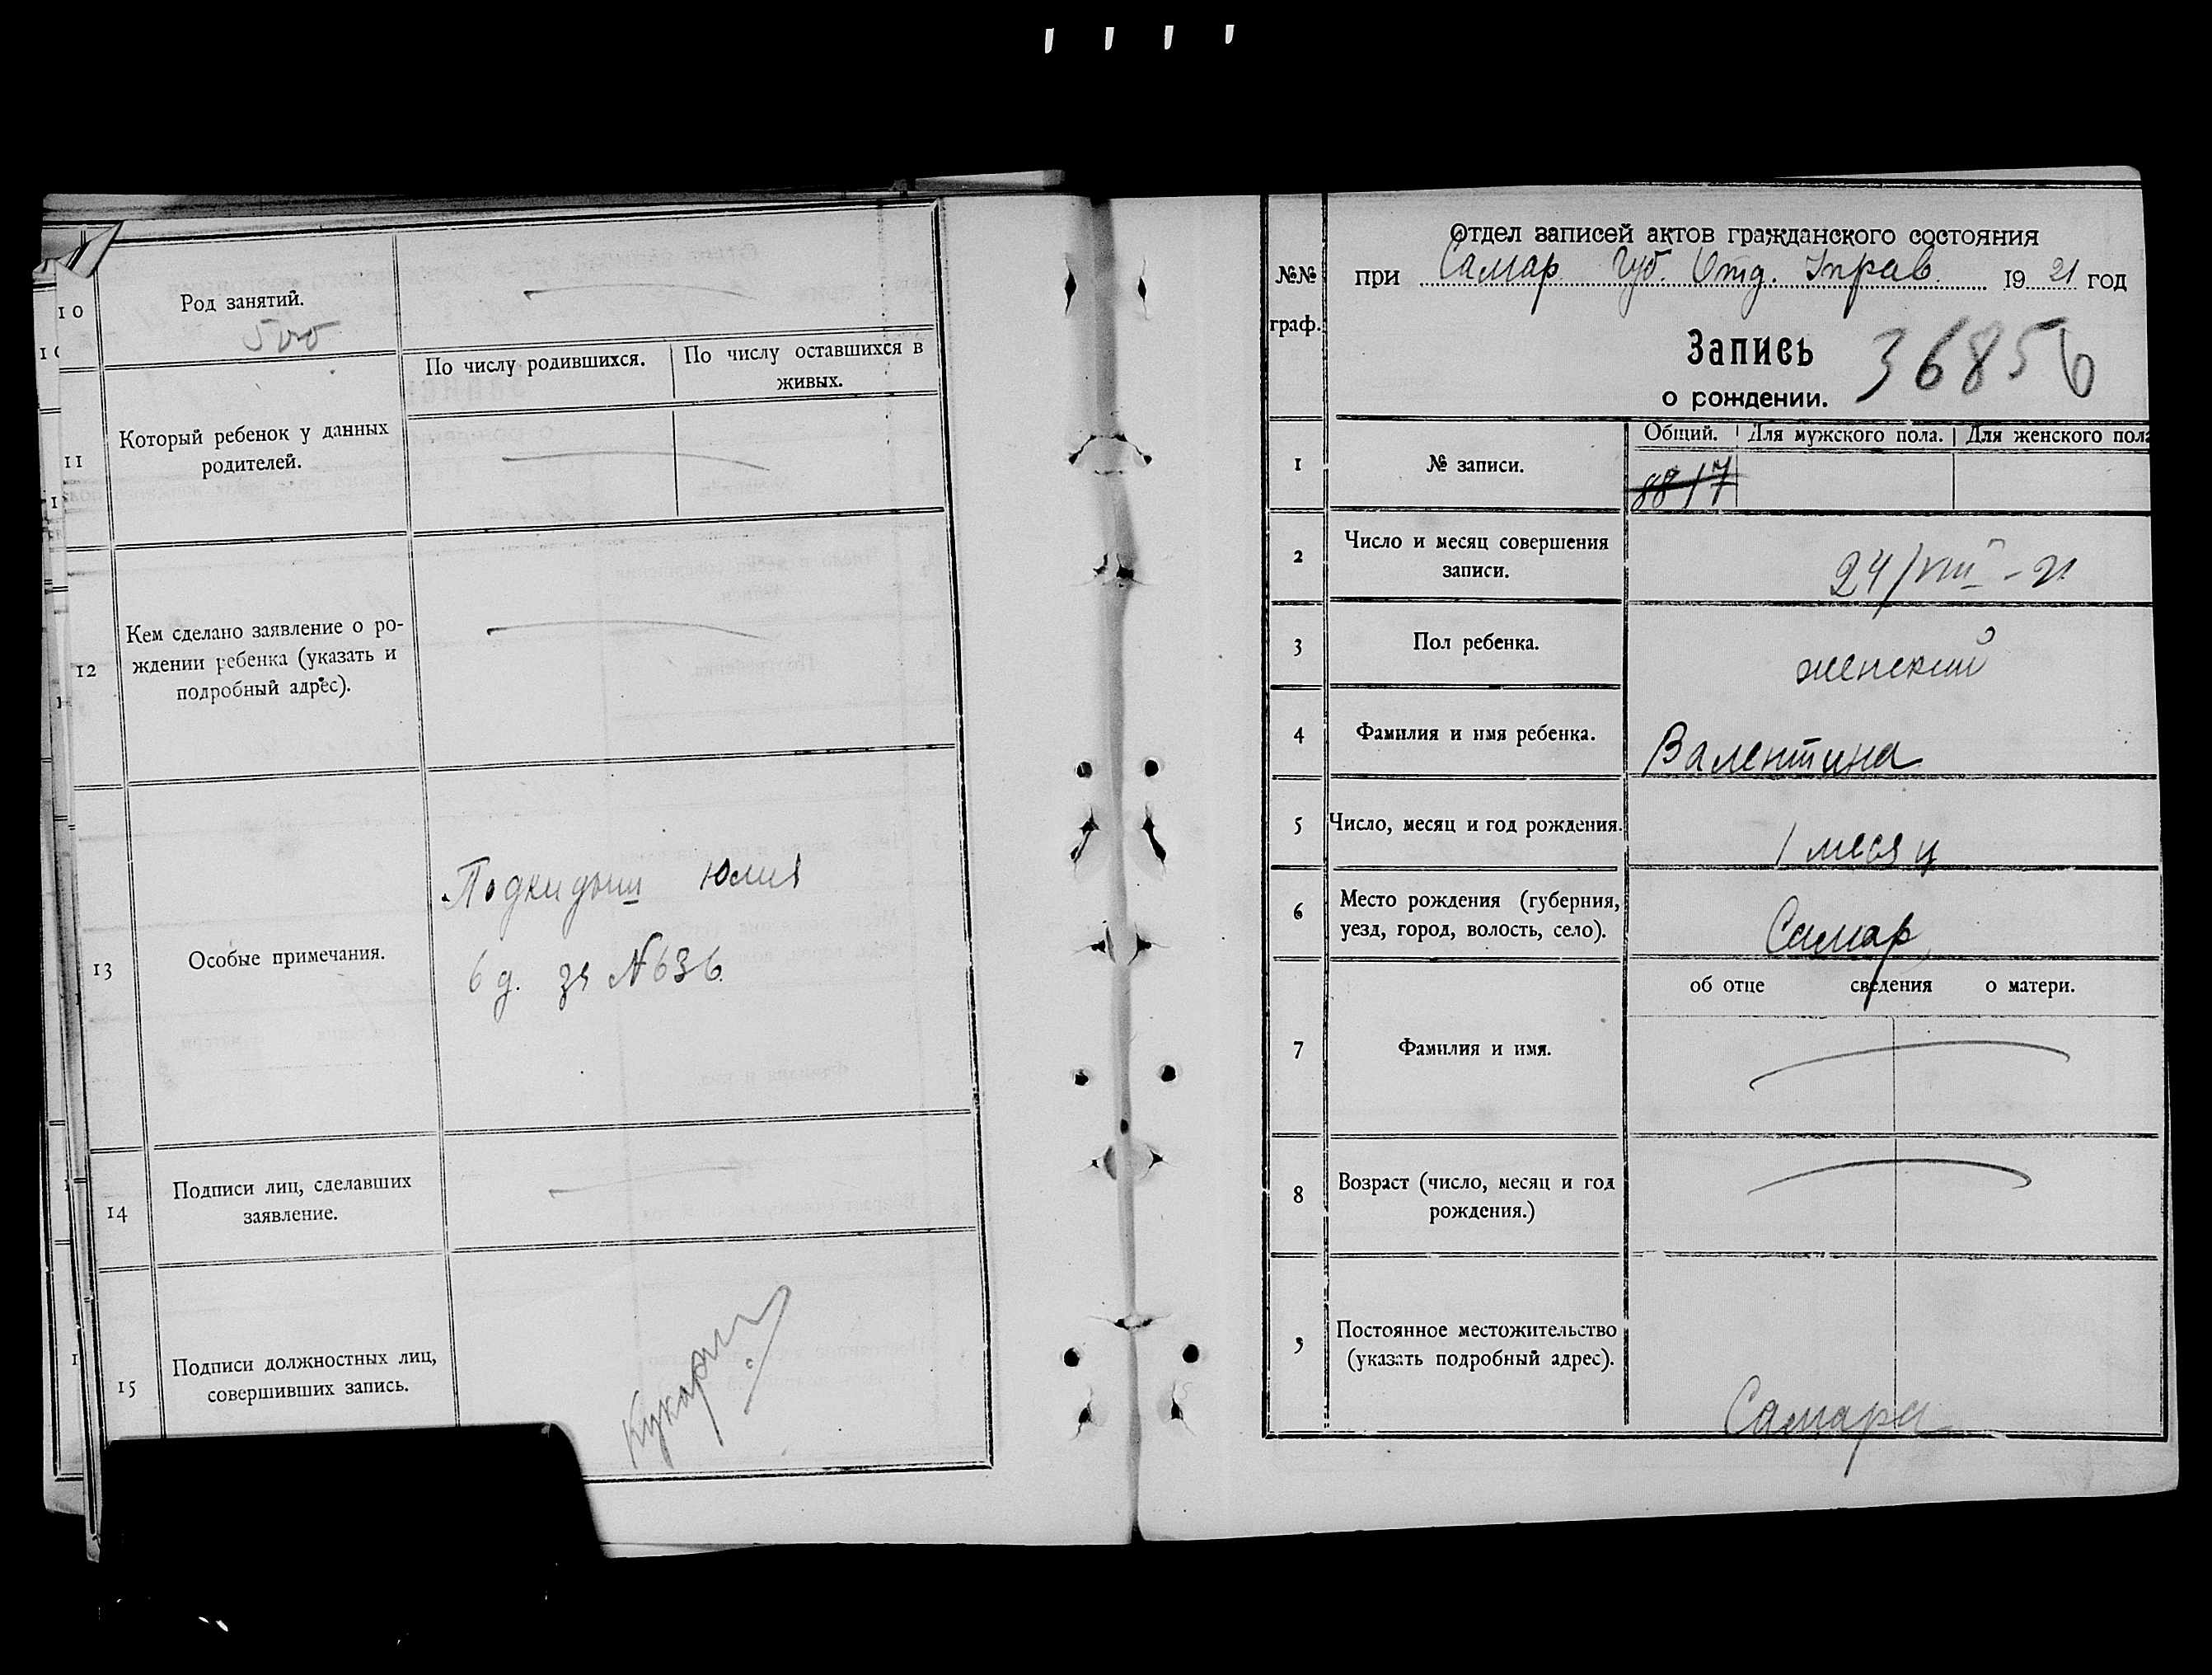 10
Род занятий.
500
11
Который ребенок у данных
родителей.
По числу родившихся.
По числу оставшихся в
живых.
12
Кем сделано заявление о ро-
ждении ребенка (указать и
подробный адрес).
13
Особые примечания.
Подкидыш Юлия
6 д. за №636
14
Подписи лиц, сделавших
заявление.
15
Подписи должностных лиц,
совершивших запись.
№№
граф.
Отдел записей актов гражданского состояния
при Самар. Губ. Отд. Управ. 1921 год
Запись 36856
о рождении.
Общий. Для мужского пола. Для женского пола
1 № записи. 8817
2 Число и месяц совершения
записи.
24/VIII - 21
3 Пол ребенка. женский
4 Фамилия и имя ребенка. Валентина
5 Число, месяц и год рождения. 1 месяц
6 Место рождения (губерния,
уезд, город, волость, село).
Самар
об отце сведения о матери.
7 Фамилия и имя.
8 Возраст (число, месяц и год
рождения.)
9 Постоянное местожительство
(указать подробный адрес).
Самара